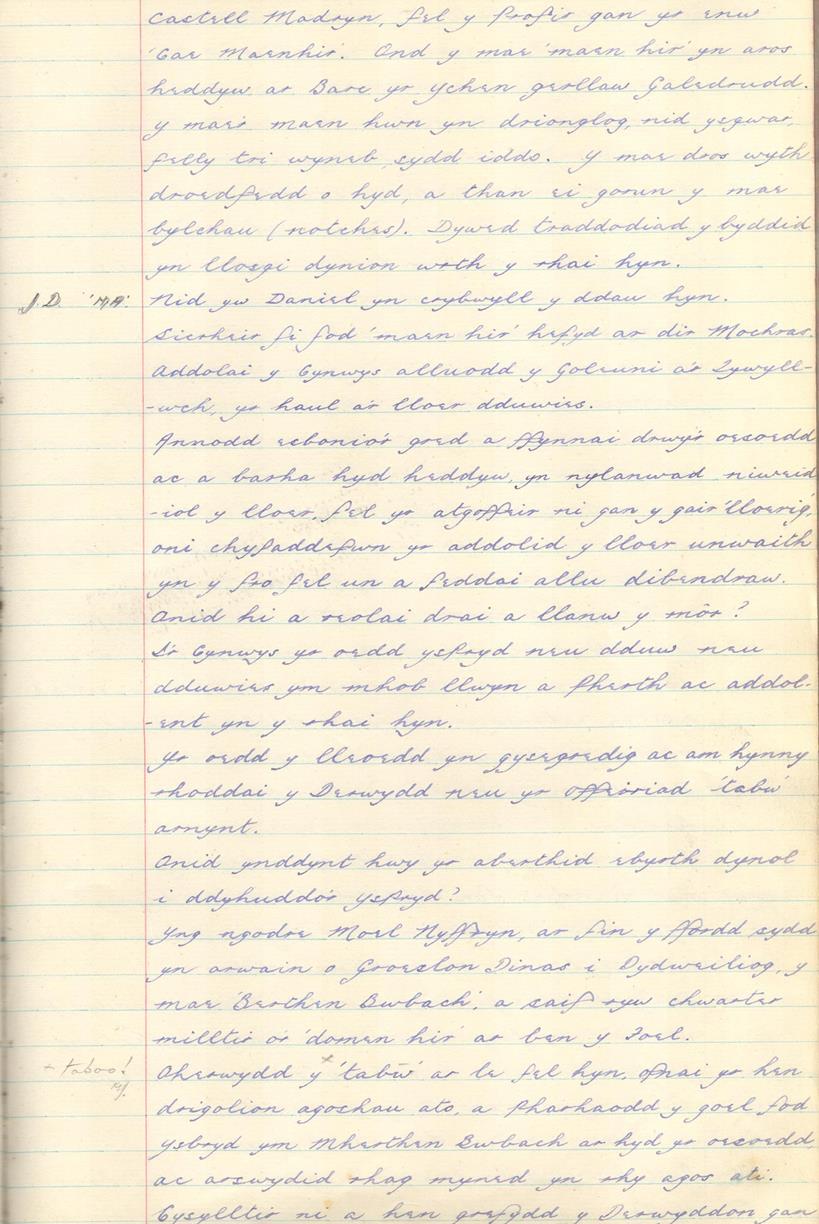 Castell Madryn, fel y profir gan yr enw
'Cae Maenhir'. Ond y mae 'maen hir' yn aros
heddyw ar Barc yr Ychen gerllaw Galedrudd.
Y mae'r maen hwn yn drionglog, nid ysgwar,
felly tri wyneb sydd iddo. Y mae dros wyth
droedfedd o hyd, a than ei gorun y mae
bylchau (notches). Dywed traddodiad y byddid
yn llosgi dynion wrth y rhai hyn.
J.D. 'M.A'. Nid yw Daniel yn crybwyll y ddau hyn.
Sicrheir fi fod 'maen hir' hefyd ar dir Mochras.
Addolai y Cynwys alluodd y Goleuni a'r Tywyll-
-wch, yr haul a'r lloer dduwies.
Annodd esbonio'r gred a ffynnai drwy'r oesoedd
ac a barha hyd heddyw, yn nylanwad niweid
-iol y lloer, fel yr atgoffeir ni gan y gair 'lloerig',
oni chyfaddefwn yr addolid y lloer unwaith
yn y fro fel un a feddai allu dibendraw.
Onid hi a reolai drai a llanw y môr?
I'r Cynwys yr oedd yspryd neu dduw neu
dduwies ym mhob llwyn a pherth ac addol-
-ent yn y rhai hyn.
Yr oedd y lleoedd yn gysegredig ac am hynny
rhoddai y Derwydd neu yr offeiriad 'tabw'
arnynt.
Onid ynddynt hwy yr aberthid ebyrth dynol
i ddyhuddo'r yspryd?
Yng ngodre Moel Nyffryn, ar fin y ffordd sydd
yn arwain o Groeslon Dinas i Dydweiliog, y
mae 'Berthen Bwbach', a saif ryw chwarter
milltir o'r 'domen hir' ar ben y Foel.
+ taboo! Oherwydd y x 'tabŵ' ar le fel hyn, ofnai yr hen
drigolion agoshau ato, a pharhaodd y goel fod
ysbryd ym Mherthen Bwbach ar hyd yr oesoedd,
ac arswydid rhag myned yn rhy agos ati.
Cysylltir ni a hen grefydd y Derwyddon gan